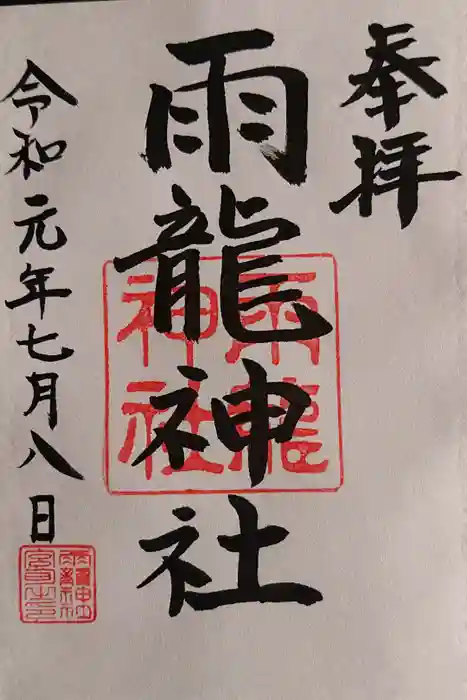 奉拝
雨龍神社
雨龍
神社
令和元年七月八日
雨龍神社
宮司之印